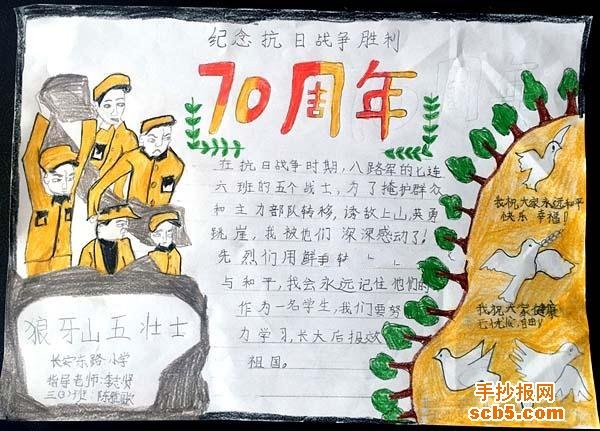 纪念抗日战争胜利
70周年
在抗日战争时期，八路军的七连
六班的五个战士，为了掩护群众
和主力部队转移，诱敌上山，英勇
跳崖，我被他们深深感动了！
先烈们用鲜
与和平，我会永远记住他们的
作为一名学生，我们要努
力学习，长大后报效
祖国。
狼牙山五壮士
长安东路小学
指导老师：李志
班：陈
我祝大家永远和平
快乐 幸福！！
我祝大家健康
无忧
手抄报网
scb5.com